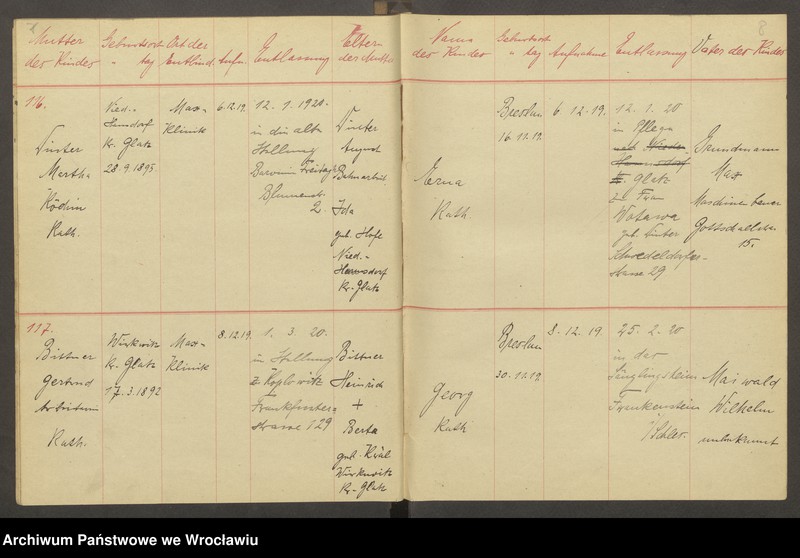 Mutter der Kinder
Geburtsort " tag
Ort der Entbind.
Aufn.
Entlassung
Eltern der Mutter
Name der Kinder
Geburtsort " tag
Aufnahme
Entlassung
Vater der Kinder
116.
Winter
Martha
Köchin
Kath.
Nied.-
Hannsdorf
Kr. Glatz
28.9.1895
Max-
Klinik
6.12.19.
12. 1. 1920.
in die alte
Stellung
Freitag
Blumenstr.
2
Winter
August
Ida
geb. Hofe
Nied.-
Hannsdorf
Kr. Glatz
Erna
Kath
Breslau
16.11.19.
6. 12. 19.
12. 1. 20
in Pflege
Glatz
Frau
Wotawa
geb. Winter
strasse 29
Grundmann
Max
Maschinenbauer
15.
117.
Bittner
Gertrud
Arbeiterin
Kath.
Kr. Glatz
17.3.1892
Max-
Klinik
8.12.19.
1. 3. 20.
in Stellung
Frankfurter-
strasse 129
Bittner
Heinrich
+
Berta
geb. Kräl
Kr. Glatz
Georg
Kath
Breslau
30.11.19
8. 12. 19
25. 2. 20
in das
Säuglingsheim
Frankenstein
/Schles.
Maiwald
Wilhelm
unbekannt
Archiwum Państwowe we Wrocławiu